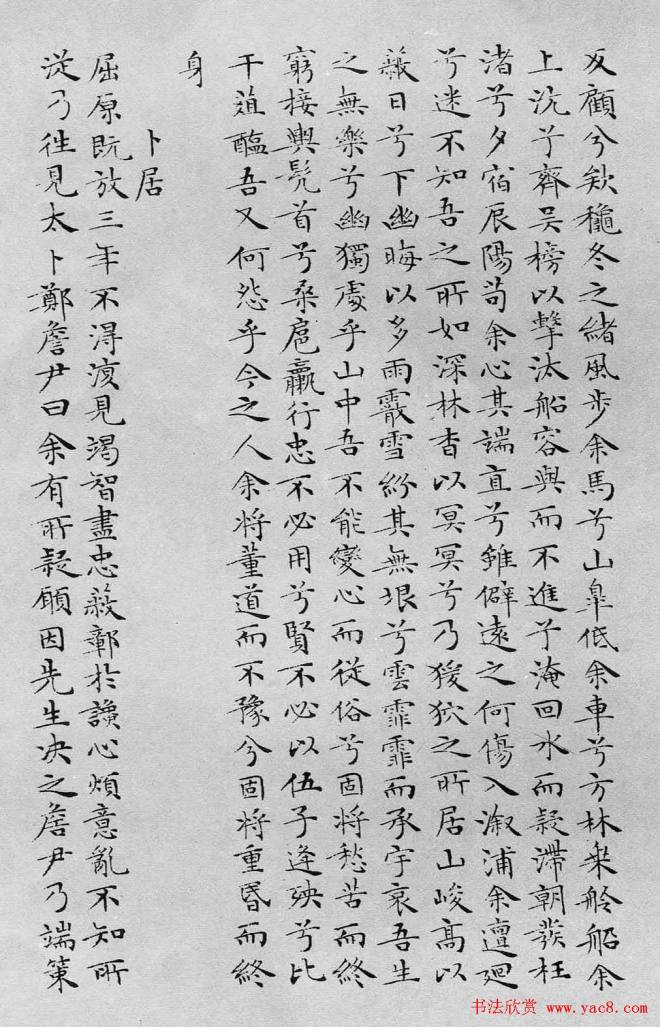 反顧兮欸穐冬之緒風步余馬兮山皐低余車兮方林乗舲船余
上沅兮齊吳榜以擊汰船容與而不進兮淹回水而疑滯朝發枉
渚兮夕宿辰陽苟余心其端直兮雖僻遠之何傷入溆浦余儃廻
兮迷不知吾之所如深林杳以冥冥兮乃猨狖之所居山峻高以
蔽日兮下幽晦以多雨霰雪紛其無垠兮雲霏霏而承宇哀吾生
之無樂兮幽獨處乎山中吾不能變心而從俗兮固將愁苦而終
窮接輿髡首兮桑扈臝行忠不必用兮賢不必以伍子逢殃兮比
干葅醢吾又何怨乎今之人余將董道而不豫兮固將重昏而終
身
卜居
屈原既放三年不得復見竭智盡忠蔽鄣於讒心煩意亂不知所
從乃往見太卜鄭詹尹曰余有所疑願因先生决之詹尹乃端策
书法欣赏 www.yac8.com